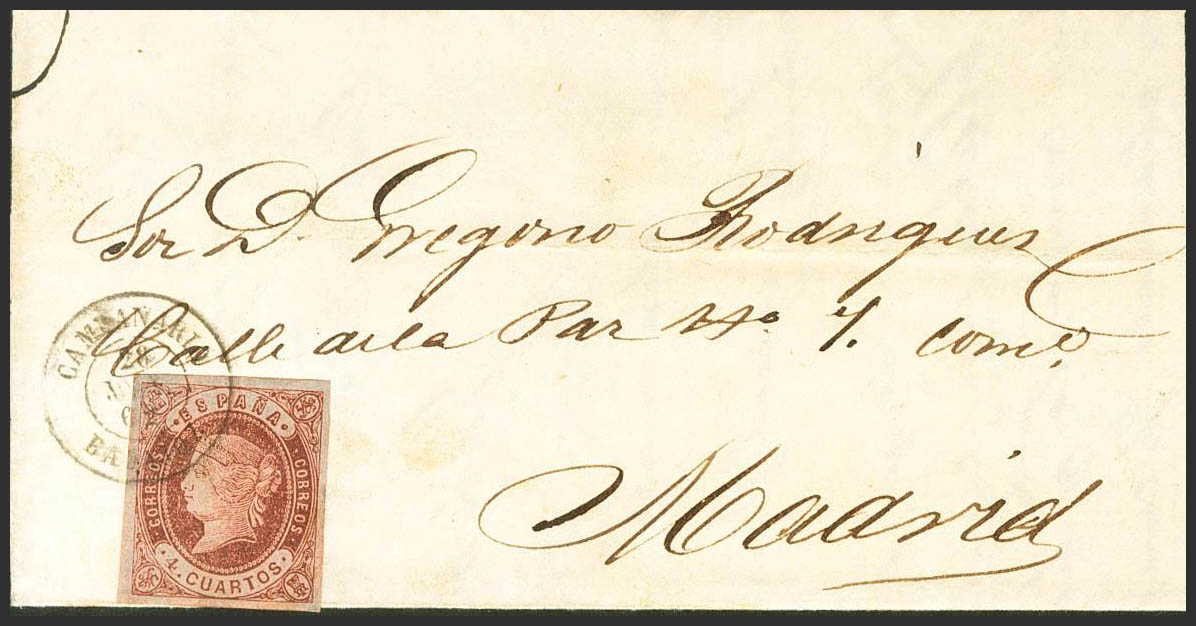 Sor D. Gregorio Rodriguez
Calle de la Paz No 7. Comº.
Madrid
28
ESPAÑA
CORREOS
CORREOS
4. CUARTOS.